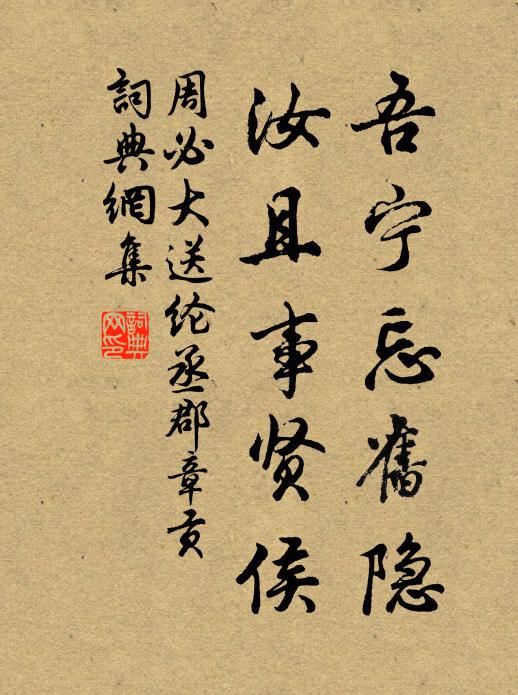 吾宁忘舊隐
汝且事贤侯
周必大送纶丞郡章贡
詞典網集
詞典
网印